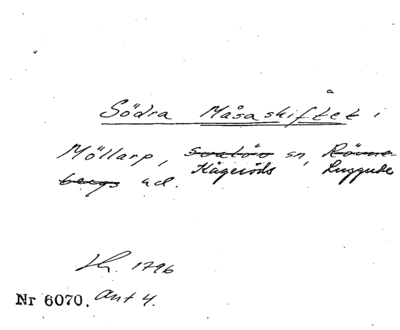 Södra Måsaskiftet i
Möllarp, Svalöv sn, Rönne-
Kågeröds Luggude
bergs hd.
Lh. 1796
Nr 6070. Akt 4.